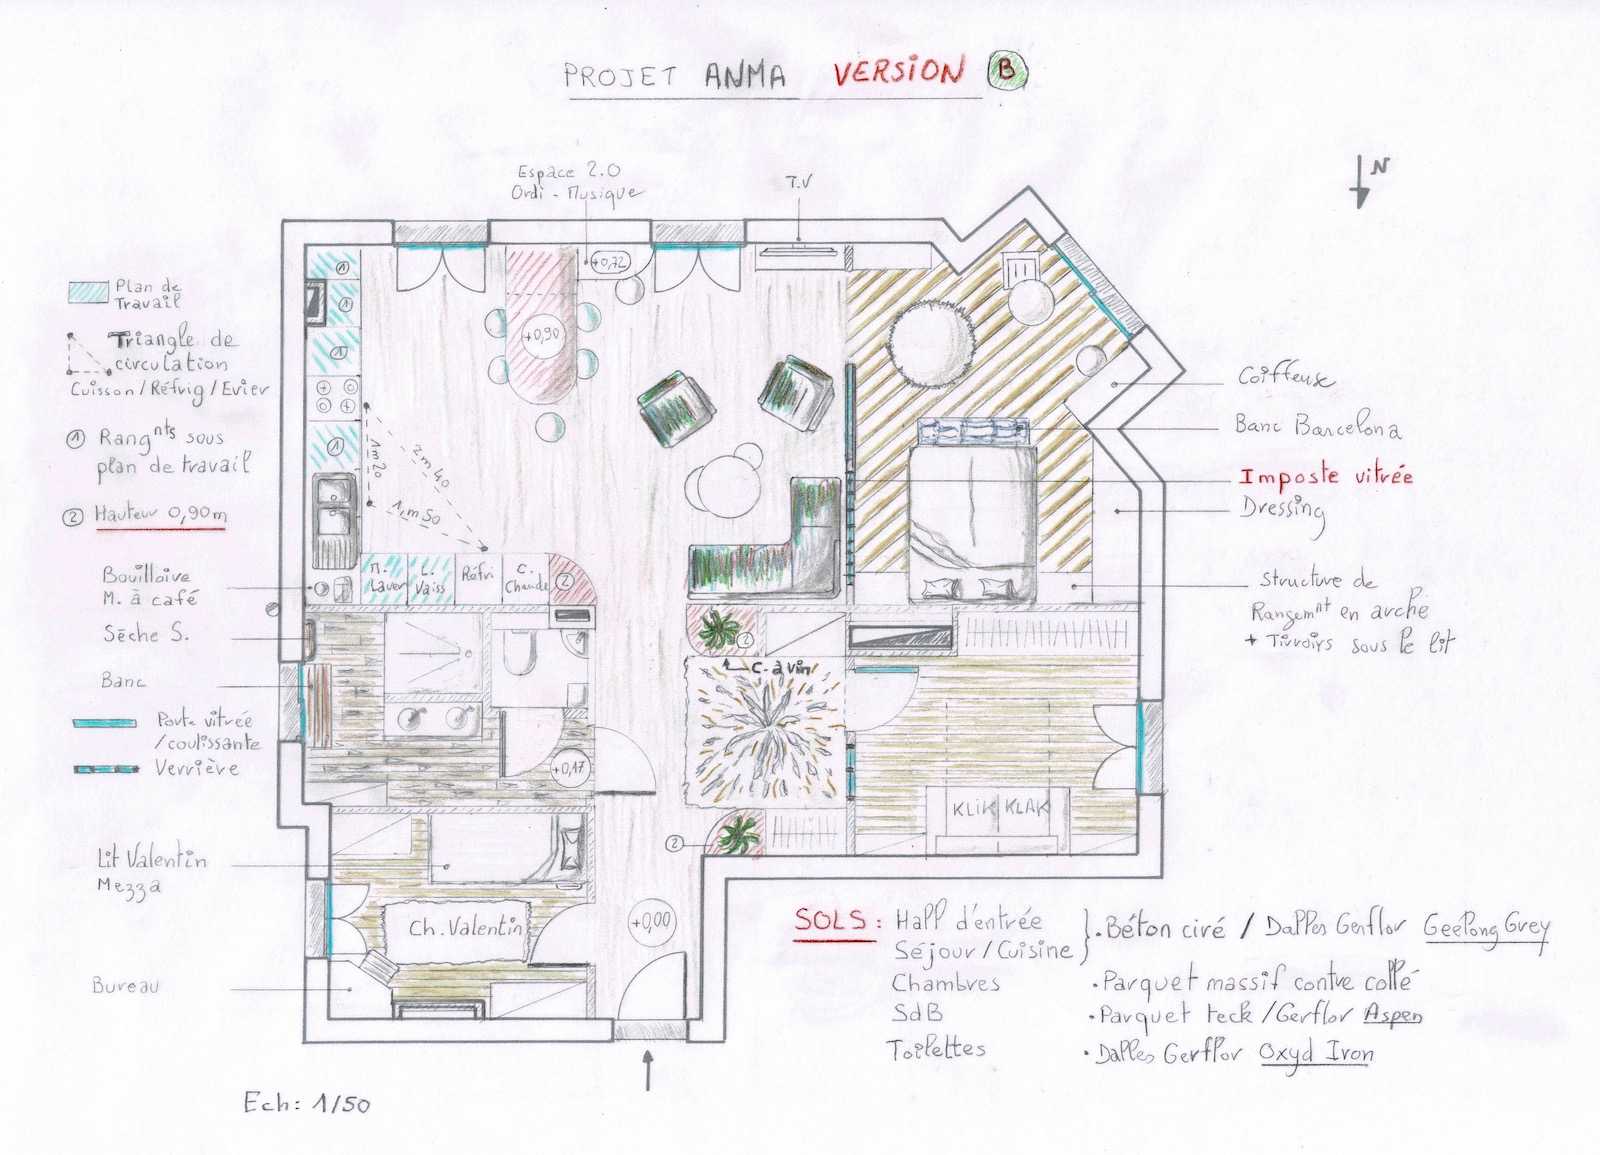 PROJET ANMA VERSION B
N
Espace 2.0
Ordi - Musique
T.V
Plan de
Travail
Triangle de
circulation
Cuisson / Réfrig / Evier
1 Rangnts sous
plan de travail
2 Hauteur 0,90m
Bouilloire
M. à café
Sèche S.
Banc
Porte vitrée
/coulissante
Verrière
Lit Valentin
Mezza
Bureau
1
1
1
1
+0,72
+0,90
1m20
2m40
1m50
M.
Laver
L.
Vaiss
Réfri
C.
Chaude
2
2
C. à vin
+0,17
KLIK KLAK
2
Ch. Valentin
+0,00
Coiffeuse
Banc Barcelona
Imposte vitrée
Dressing
Structure de
Rangemnt en arche
+ Tirroirs sous le lit
SOLS : Hall d'entrée
Séjour / Cuisine } . Béton ciré / Dalles Gerflor Geelong Grey
Chambres . Parquet massif contre collé
SdB . Parquet teck / Gerflor Aspen
Toilettes . Dalles Gerflor Oxyd Iron
Ech: 1/50